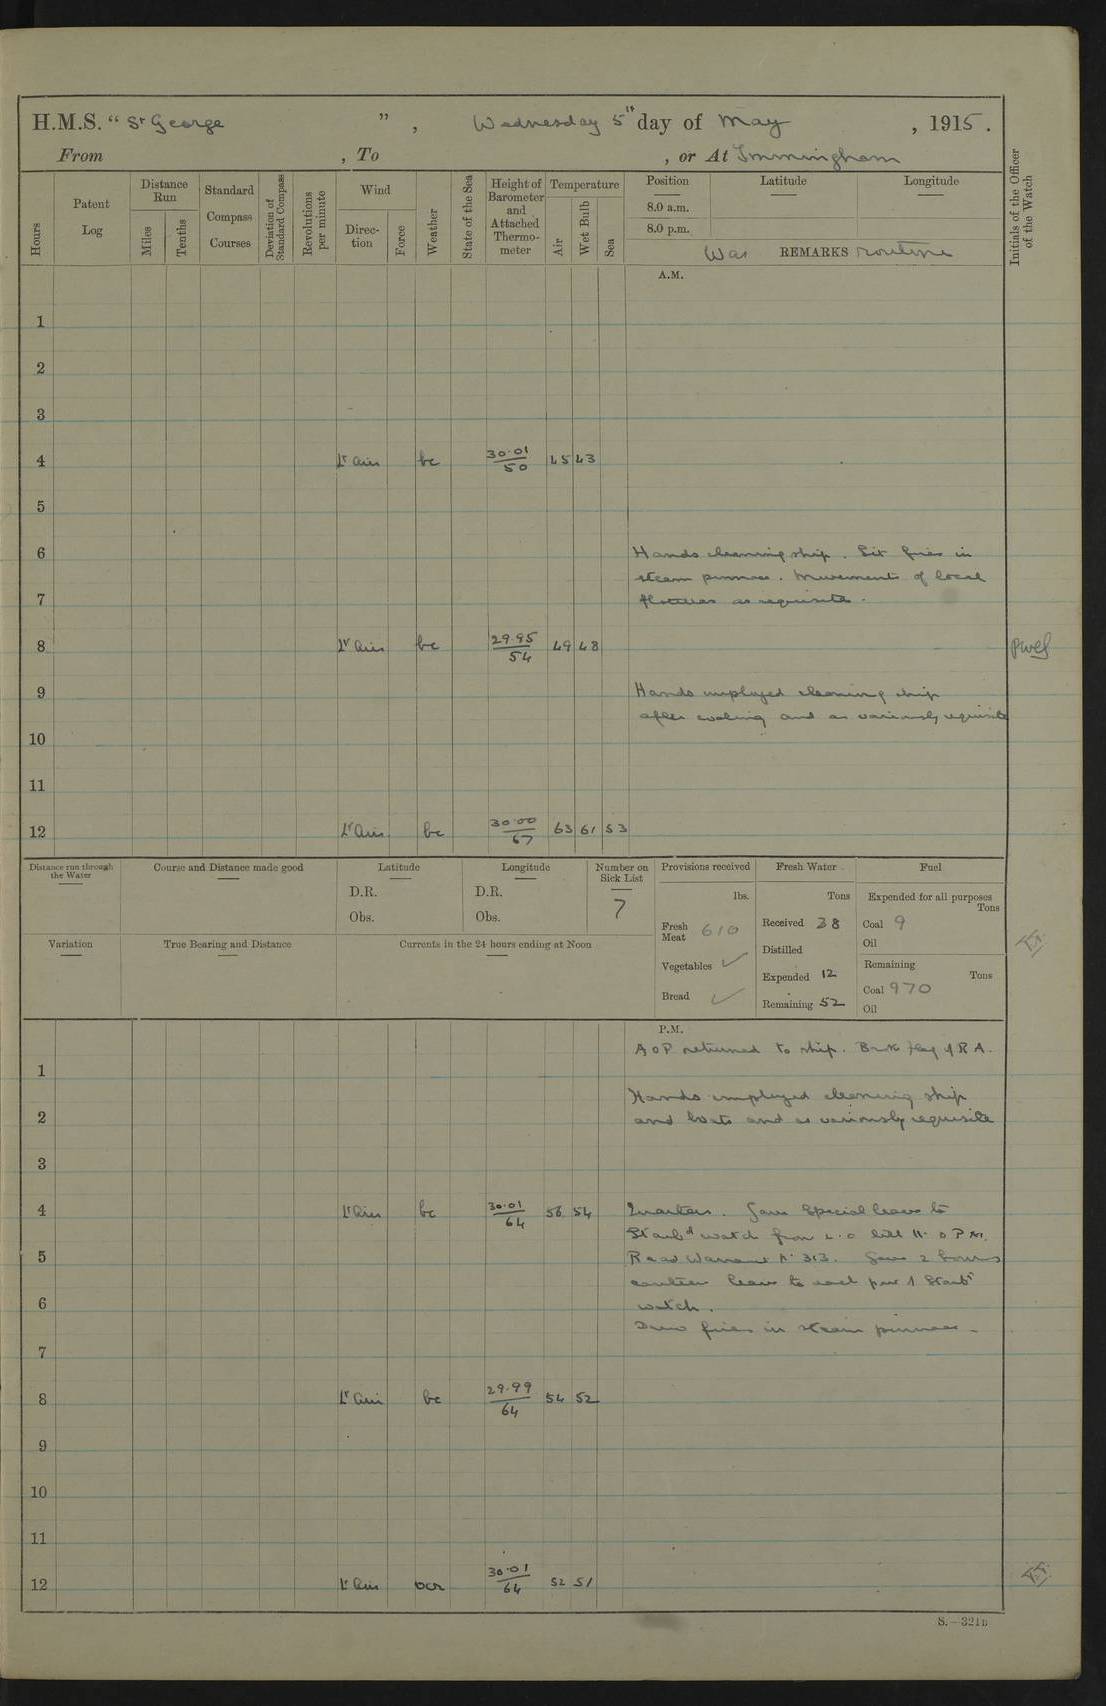 H.M.S. " St George ", Wednesday 5th day of May, 1915.
From , To , or At Immingham
Hours
Patent Log
Distance Run
Miles
Tenths
Standard Compass Courses
Deviation of Standard Compass
Revolutions per minute
Wind
Direction
Force
Weather
State of the Sea
Height of Barometer and Attached Thermometer
Temperature
Air
Wet Bulb
Sea
Position
Latitude
Longitude
8.0 a.m.
8.0 p.m.
War REMARKS routine
Initials of the Officer of the Watch
A.M.
1
2
3
4 Lt airs bc 30.01/50 45 43
5
6 Hands cleaning ship. Lit fires in
steam pinnace. Movements of local
7 flotillas as requisite.
8 Lt airs bc 29.95/54 49 48
9 Hands employed cleaning ship
after coaling and as variously requisite
10
11
12 Lt Airs bc 30.00/67 63 61 53
Distance run through the Water
Course and Distance made good
Latitude
D.R.
Obs.
Longitude
D.R.
Obs.
Number on Sick List
7
Provisions received
lbs.
Fresh Meat 610
Vegetables ✓
Bread ✓
Fresh Water
Tons
Received 38
Distilled
Expended 12
Remaining 52
Fuel
Expended for all purposes
Tons
Coal 9
Oil
Remaining
Tons
Coal 970
Oil
Variation
True Bearing and Distance
Currents in the 24 hours ending at Noon
P.M.
returned to ship. Flag of R A.
1
Hands employed cleaning ship
2 and boats and as variously requisite
3
4 Lt airs bc 30.01/64 56 54 Quarters. Gave Special leave to
Starbd watch from till 11.0 PM.
5 Read Warrant No 313. Gave 2 hours
canteen leave to each part of Starbd
6 watch.
Drew fires in steam pinnace.
7
8 Lt airs bc 29.99/64 54 52
9
10
11
12 Lt airs ocr 30.01/64 52 51
S.—321B